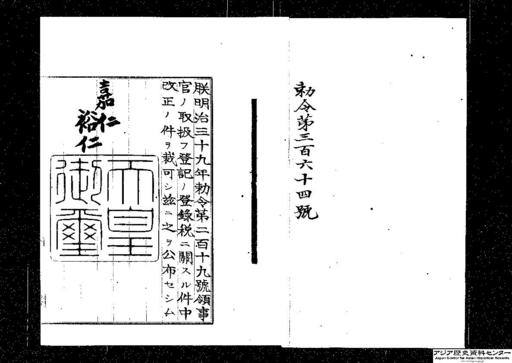 勅令第三百六十四號
朕明治三十九年勅令第二百十九號領事
官ノ取扱フ登記ノ登錄税ニ關スル件中
改正ノ件ヲ裁可シ茲ニ之ヲ公布セシム
嘉仁
裕仁
天皇
御璽
アジア歴史資料センター
Japan Center for Asian Historical Records